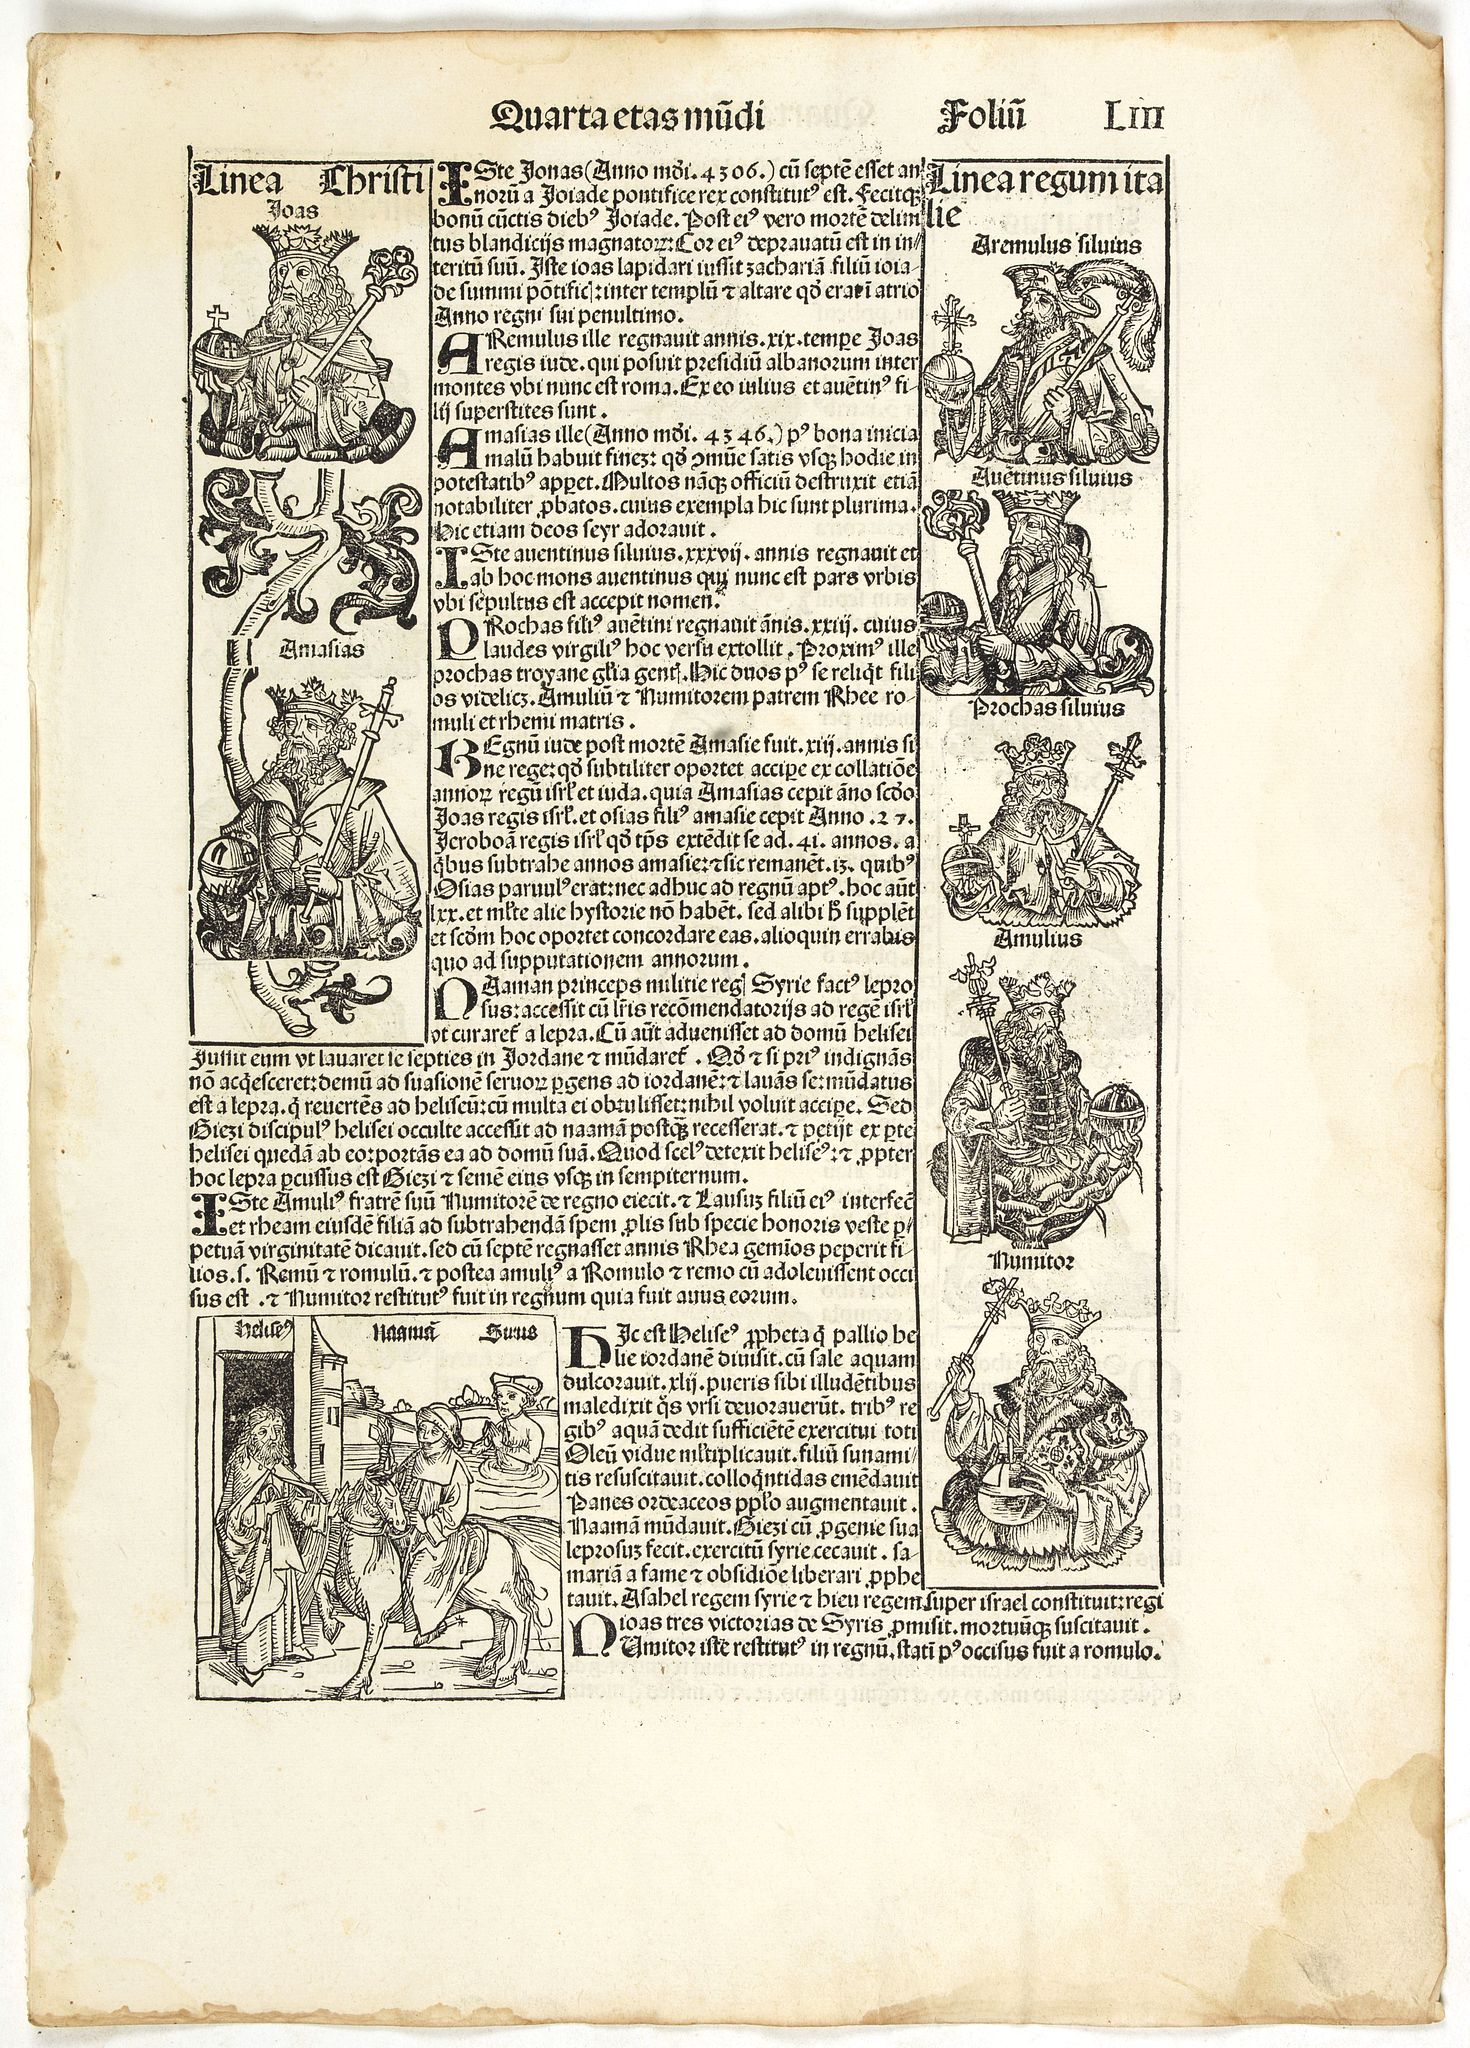 Quarta etas mũdi Foliũ LIII
Linea Christi
Joas
Amasias
ISte Jonas (Anno mũdi. 4306.) cũ septẽ esset an
norũ a Joiade pontifice rex constitutꝰ est. Fecitqꝫ
bonũ cũctis diebꝰ Joiade. Post eiꝰ vero mortẽ delini
tus blandicijs magnatoꝝ: Cor eiꝰ deprauatũ est in in/
teritũ suũ. Iste ioas lapidari iussit zachariã filiũ ioia-
de summi põtific: inter templũ ⁊ altare qđ erat ĩ atrio
Anno regni sui penultimo.
ARemulus ille regnauit annis. xix. tempe Joas
regis iude. qui posuit presidiũ albanorum inter
montes vbi nunc est roma. Ex eo iulius et auẽtinꝰ fi-
lij superstites sunt.
Amasias ille (Anno mũdi. 4346.) pꝰ bona inicia
malũ habuit finez: qđ ↄmũe satis vsqꝫ hodie in
potestatibꝰ appet. Multos nãqꝫ officiũ destruxit etiã
notabiliter ꝓbatos. cuius exempla hic sunt plurima.
Hic etiam deos seyr adorauit.
ISte auentinus siluius. xxxvij. annis regnauit et
ab hoc mons auentinus qui nunc est pars vrbis
vbi sepultus est accepit nomen.
PRochas filiꝰ auẽtini regnauit ãnis. xxiij. cuius
laudes virgiliꝰ hoc versu extollit. Proximꝰ ille
prochas troyane gl̃ia gent. Hic duos pꝰ se reliq̃t fili
os videlicꝫ. Amuliũ ⁊ Numitorem patrem Rhee ro-
muli et rhemi matris.
REgnũ iude post mortẽ Amasie fuit. xiij. annis si
ne rege: qđ subtiliter oportet accipe ex collatiõe
annoꝝ regũ isrł et iuda. quia Amasias cepit ãno scđo
Joas regis isrł. et osias filiꝰ amasie cepit Anno. 27.
Jeroboã regis isrł qđ tp̃s extẽdit se ad. 41. annos. a
q̃bus subtrahe annos amasie: ⁊ sic remanẽt. 13. quibꝰ
Osias paruulꝰ erat: nec adhuc ad regnũ aptꝰ. hoc aũt
lxx. et ml̃te alie hystorie nõ habẽt. sed alibi h̃ supplẽt
et scđm hoc oportet concordare eas. alioquin errabis
quo ad supputationem annorum.
NAaman princeps militie reg Syrie factꝰ lepro
sus: accessit cũ lr̃is recõmendatorijs ad regẽ isrł
vt curaret̃ a lepra. Cũ aũt aduenisset ad domũ helisei
Jussit eum vt lauaret se septies in Jordane ⁊ mũdaret̃. Qđ ⁊ si priꝰ indignãs
nõ acq̃esceret: demũ ad suasionẽ seruoꝝ pgens ad iordanẽ: ⁊ lauãs se: mũdatus
est a lepra. q̃ reuertẽs ad heliseũ: cũ multa ei obtulisset: nihil voluit accipe. Sed
Giezi discipulꝰ helisei occulte accessit ad naamã postqꝫ recesserat. ⁊ petijt ex pte
helisei quedã ab eo: portãs ea ad domũ suã. Quod scelꝰ detexit heliseꝰ: ⁊ ꝓpter
hoc lepra pcussus est Giezi ⁊ semẽ eius vsqꝫ in sempiternum.
ISte Amuliꝰ fratrẽ suũ Numitorẽ de regno eiecit. ⁊ Lausuꝫ filiũ eiꝰ interfec̃
et rheam eiusdẽ filiã ad subtrahendã spem ꝓlis sub specie honoris veste p/
petuã virginitatẽ dicauit. sed cũ septẽ regnasset annis Rhea gemi̇os peperit fi-
lios. s. Remũ ⁊ romulũ. ⁊ postea amuliꝰ a Romulo ⁊ remo cũ adoleuissent occi
sus est. ⁊ Numitor restitutꝰ fuit in regnum quia fuit auus eorum.
Heliseꝰ Naamã Sirus
HIc est Heliseꝰ ꝓpheta q̃ pallio he
lie iordanẽ diuisit. cũ sale aquam
dulcorauit. xlij. pueris sibi illudẽtibus
maledixit q̃s vrsi deuorauerũt. tribꝰ re
gibꝰ aquã dedit sufficiẽtẽ exercitui toti
Oleũ vidue ml̃tiplicauit. filiũ sunami/
tis resuscitauit. colloq̃ntidas emẽdauit
Panes ordeaceos pplo augmentauit.
Naamã mũdauit. Giezi cũ ꝓgenie sua
leprosuꝫ fecit. exercitũ syrie cecauit. sa-
mariã a fame ⁊ obsidiõe liberari ꝓphe
tauit. Asahel regem syrie ⁊ hieu regem super israel constituit: regi
ioas tres victorias de Syris ꝓmisit. mortuũqꝫ suscitauit.
NUmitor iste restitutꝰ in regnũ. stati pꝰ occisus fuit a romulo.
Linea regum ita
lie
Aremulus siluius
Auẽtinus siluius
Prochas siluius
Amulius
Numitor